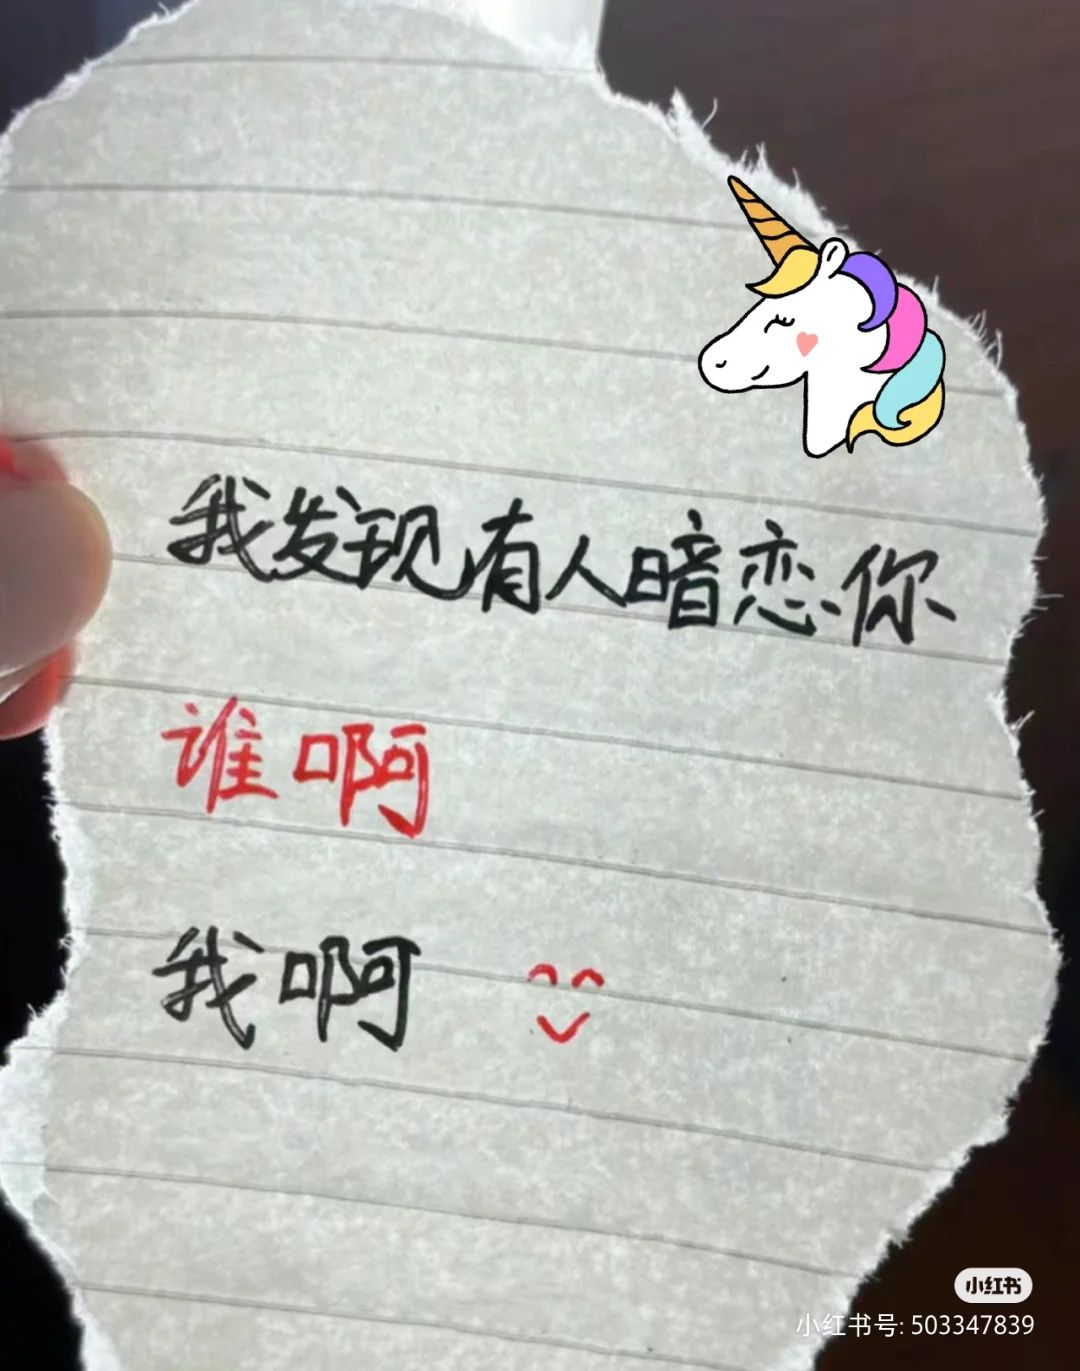 我发现有人暗恋你
谁啊
我啊
小红书
小红书号: 503347839